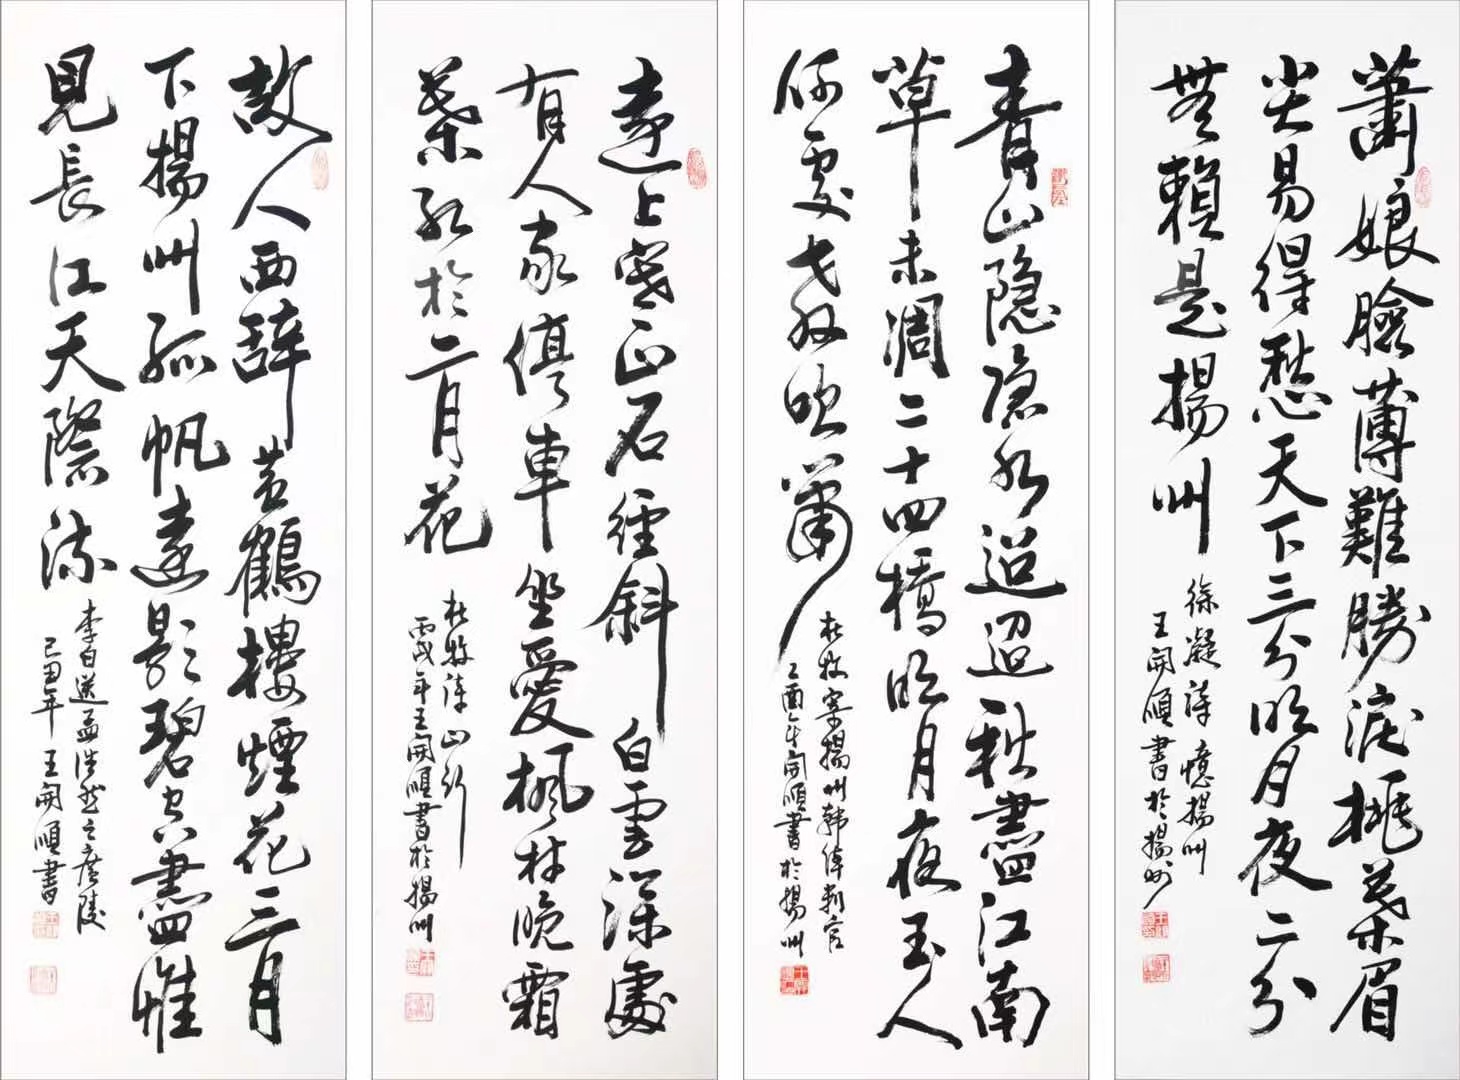 蕭娘臉薄難勝淚桃葉眉
尖易得愁天下三分明月夜二分
無賴是揚州
徐凝詩 憶揚州
王開順書於揚州
青山隐隐水迢迢秋盡江南
草未凋二十四橋明月夜玉人
何處教吹簫
杜牧寄揚州韩绰判官
乙酉年開順書於揚州
遠上寒山石徑斜白雲深處
有人家停車坐愛楓林晚霜
葉紅於二月花
杜牧詩山行
丙戌年王開順書於揚州
故人西辭黃鶴樓煙花三月
下揚州孤帆遠影碧空盡惟
見長江天際流
李白送孟浩然之廣陵
己丑年王開順書